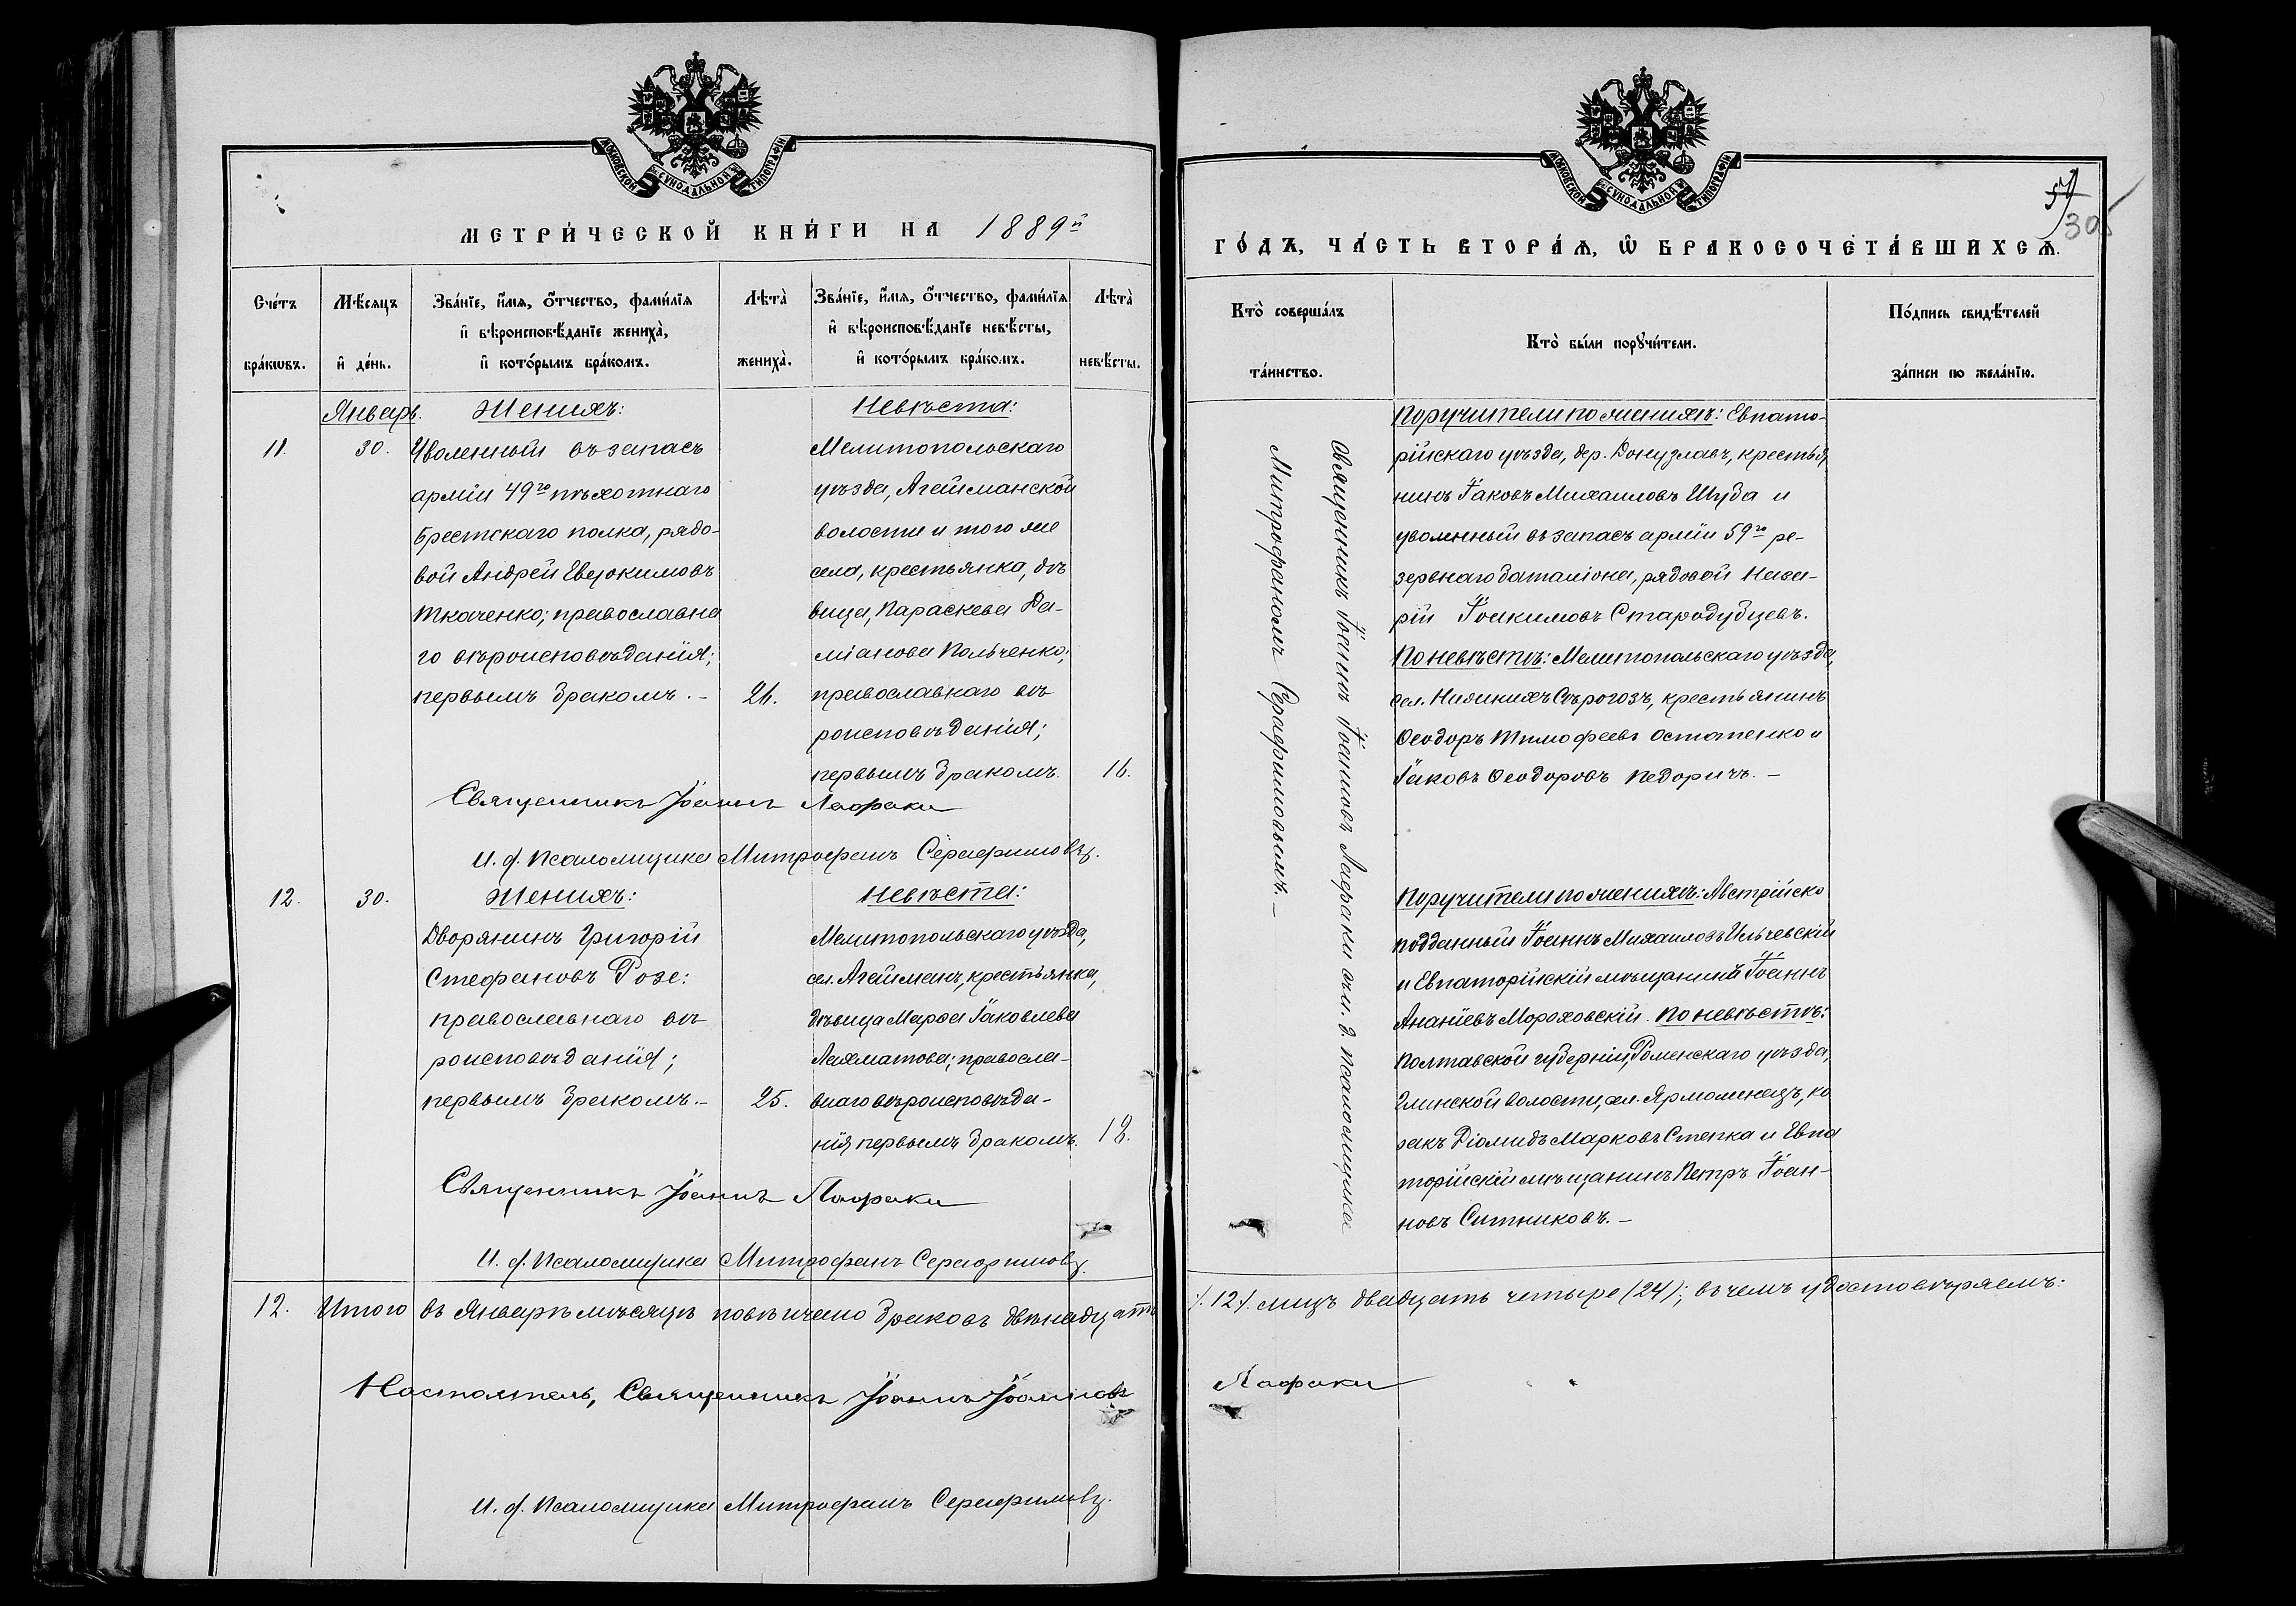 МОСКОВСКОЙ СѴНОДАЛЬНОЙ ТИПОГРАФІИ
МЕТРИ́ЧЕСКОЙ КНИ́ГИ НА 1889й
Сче́тъ бра́кѡвъ.
Мѣ́сяцъ и҆ де́нь.
Зва́нїе, и҆́мѧ, ѻ҆́тчество, фами́лїѧ
и҆ вѣроисповѣ́данїе жениха̀,
и҆ кото́рымъ бра́комъ.
Лѣта̀ жениха̀.
Зва́нїе, и҆́мѧ, ѻ҆́тчество, фами́лїѧ
и҆ вѣроисповѣ́данїе невѣ́сты,
и҆ кото́рымъ бра́комъ.
Лѣта̀ невѣ́сты.
Январь.
11.
30.
Женихъ:
Уволенный въ запасъ
арміи 49го пѣхотнаго
Брестскаго полка, рядо-
вой Андрей Евдокимовъ
Ткаченко; православна
го вѣроисповѣданія;
первымъ бракомъ. –
26.
Невѣста:
Мелитопольскаго
уѣзда, Агайманской
волости и того же
села, крестьянка, дѣ
вица, Параскева Да-
міанова Кольченко;
православнаго вѣ
роисповѣданія;
первымъ бракомъ.
16.
Священникъ Іоаннъ Лафаки
И. д. Псаломщика Митрофанъ Серафимовъ.
12.
30.
Женихъ:
Дворянинъ Григорій
Стефановъ Розе:
православнаго вѣ
роисповѣданія;
первымъ бракомъ. –
25.
Невѣста:
Мелитопольскаго уѣзда,
сел. Агайманъ, крестьянка,
дѣвица Марѳа Іаковлева
Лахматова; правосла-
внаго вѣроисповѣда-
нія первымъ бракомъ.
18.
Священникъ Іоаннъ Лафаки
И. д. Псаломщика Митрофанъ Серафимовъ.
12. Итого въ Январѣ мѣсяцѣ повѣнчано браковъ двѣнадцать
Настоятель, Священникъ Іоаннъ Іоанновъ
И. д. Псаломщика Митрофанъ Серафимовъ.
МОСКОВСКОЙ СѴНОДАЛЬНОЙ ТИПОГРАФІИ
57
305
ГО́ДЪ, ЧА́СТЬ ВТОРА́Ѧ, Ѽ БРАКОСОЧЕТА́ВШИХСѦ.
Кто̀ соверша́лъ та́инство.
Кто̀ бы́ли порꙋчи́тели.
По́дпись свидѣ́телей
за́писи по жела́нїю.
Священникъ Іоаннъ Іоанновъ Лафаки съ и. д. псаломщика
Митрофаномъ Серафимовымъ. –
Поручители по женихѣ: Евпато-
рійскаго уѣзда, дер. Донузлавъ, крестья
нинъ Іаковъ Михаиловъ Шуба и
уволенный въ запасъ арміи 59го ре-
зервнаго баталіона, рядовой Наза-
рій Іоакимовъ Стародубцевъ.
По невѣстѣ: Мелитопольскаго уѣзда,
сел. Нижнихъ Сѣрогозъ, крестьянинъ
Ѳеодоръ Тимофеевъ Остапенко и
Іаковъ Ѳеодоровъ Педоричъ. –
Поручители по женихѣ: Австрійско
подданный Іоаннъ Михаиловъ Ильчевскій
и Евпаторійскій мѣщанинъ Іоаннъ
Ананіевъ Мороховскій. По невѣстѣ:
Полтавской губерніи, Роменскаго уѣзда,
Глинской волости, сел. Ярмолинецъ, ко
закъ Діомидъ Марковъ Степка и Евпа
торійскій мѣщанинъ Петръ Іоан-
новъ Ситниковъ. –
/.12/. лицъ двадцать четыре (24); въ чемъ удостовѣряемъ:
Лафаки